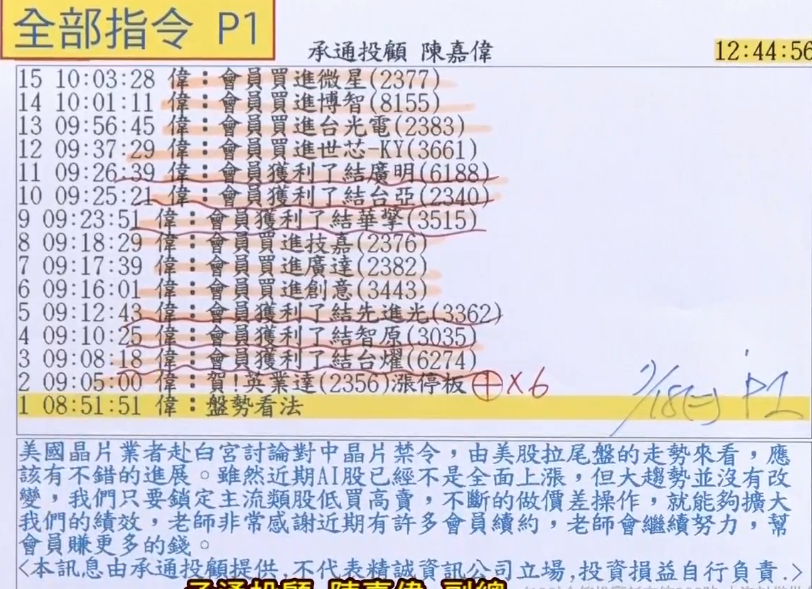 全部指令 P1
承通投顧 陳嘉偉
12:44:56
15 10:03:28 偉：會員買進微星(2377)
14 10:01:11 偉：會員買進博智(8155)
13 09:56:45 偉：會員買進台光電(2383)
12 09:37:29 偉：會員買進世芯-KY(3661)
11 09:26:39 偉：會員獲利了結廣明(6188)
10 09:25:21 偉：會員獲利了結台亞(2340)
9 09:23:51 偉：會員獲利了結華擎(3515)
8 09:18:29 偉：會員買進技嘉(2376)
7 09:17:39 偉：會員買進廣達(2382)
6 09:16:01 偉：會員買進創意(3443)
5 09:12:43 偉：會員獲利了結先進光(3362)
4 09:10:25 偉：會員獲利了結智原(3035)
3 09:08:18 偉：會員獲利了結台燿(6274)
2 09:05:00 偉：賀!英業達(2356)漲停板 ⊕×6
1 08:51:51 偉：盤勢看法
P1
美國晶片業者赴白宮討論對中晶片禁令，由美股拉尾盤的走勢來看，應
該有不錯的進展。雖然近期AI股已經不是全面上漲，但大趨勢並沒有改
變，我們只要鎖定主流類股低買高賣，不斷的做價差操作，就能夠擴大
我們的績效，老師非常感謝近期有許多會員續約，老師會繼續努力，幫
會員賺更多的錢。
<本訊息由承通投顧提供,不代表精誠資訊公司立場,投資損益自行負責.>
承通投顧 陳嘉偉 副總